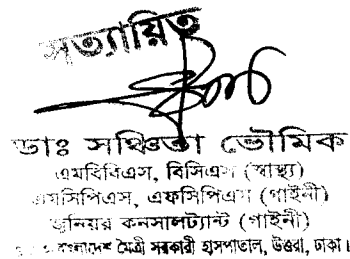 সত্যায়িত
ডাঃ সঞ্চিতা ভৌমিক
এমবিবিএস, বিসিএস (স্বাস্থ্য)
এমসিপিএস, এফসিপিএস (গাইনী)
জুনিয়র কনসালট্যান্ট (গাইনী)
বাংলাদেশ মৈত্রী সরকারী হাসপাতাল, উত্তরা, ঢাকা।